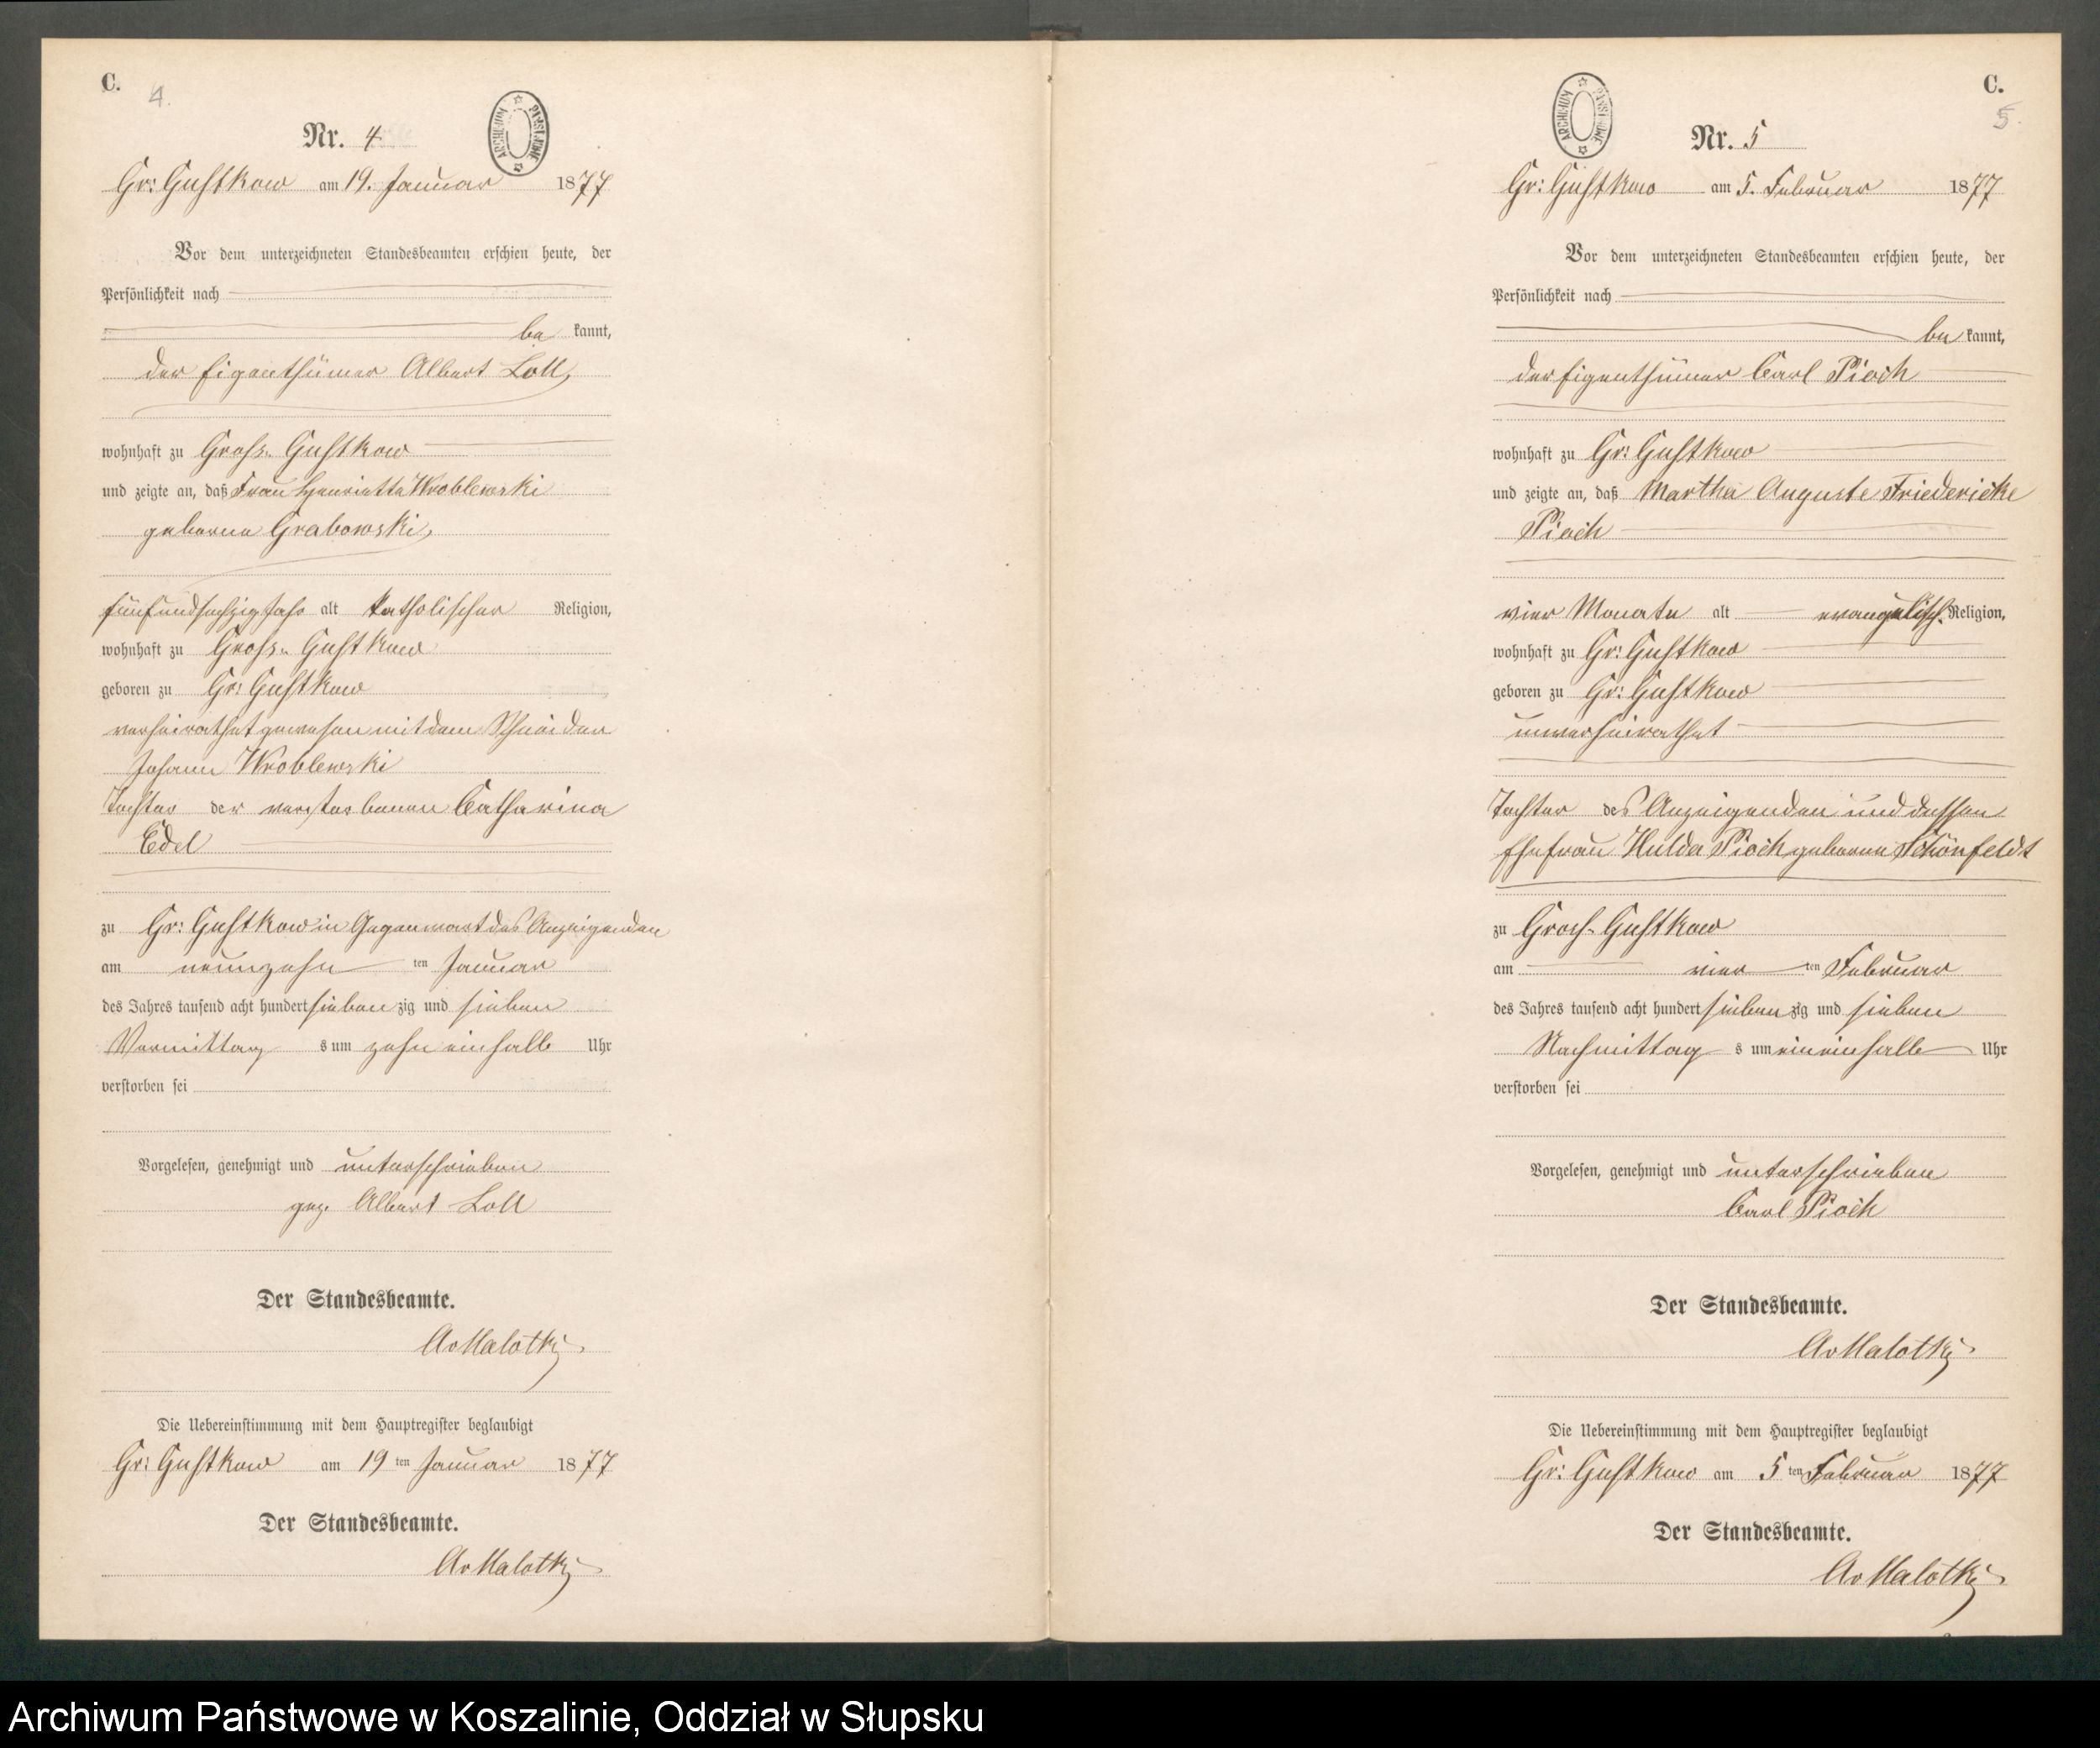 C.
4.
ARCHIWUM PAŃSTWOWE
Nr. 4
Gr: Gustkow am 19. Januar 1877
Vor dem unterzeichneten Standesbeamten erschien heute, der
Persönlichkeit nach
be kannt,
der Eigenthümer Albert Loll,
wohnhaft zu Gross Gustkow
und zeigte an, daß Frau Henriette Wroblewski
geborne Grabowski,
fünfundsechzig Jahr alt katholischer Religion,
wohnhaft zu Gross Gustkow
geboren zu Gr: Gustkow
verheirathet gewesen mit dem Schneider
Johann Wroblewski
Tochter der verstorbenen Catharina
Edel
zu Gr: Gustkow in Gegenwart des Anzeigenden
am neunzehn ten Januar
des Jahres tausend acht hundert sieben zig und sieben
Vormittag s um zehn einhalb Uhr
verstorben sei
Vorgelesen, genehmigt und unterschrieben
gez. Albert Loll
Der Standesbeamte.
AvMalottki
Die Uebereinstimmung mit dem Hauptregister beglaubigt
Gr: Gustkow am 19 ten Januar 1877
Der Standesbeamte.
AvMalottki
C.
5.
ARCHIWUM PAŃSTWOWE
Nr. 5
Gr: Gustkow am 5. Februar 1877
Vor dem unterzeichneten Standesbeamten erschien heute, der
Persönlichkeit nach
be kannt,
der Eigenthümer Carl Pioch
wohnhaft zu Gr: Gustkow
und zeigte an, daß Martha Auguste Friedericke
Pioch
vier Monate alt evangelisch. Religion,
wohnhaft zu Gr: Gustkow
geboren zu Gr: Gustkow
unverheirathet
Tochter des Anzeigenden und dessen
Ehefrau Hulda Pioch geborne Schönfeldt
zu Gross Gustkow
am vier ten Februar
des Jahres tausend acht hundert sieben zig und sieben
Nachmittag s um ein einhalb Uhr
verstorben sei
Vorgelesen, genehmigt und unterschrieben
Carl Pioch
Der Standesbeamte.
AvMalottki
Die Uebereinstimmung mit dem Hauptregister beglaubigt
Gr: Gustkow am 5 ten Februar 1877
Der Standesbeamte.
AvMalottki
Archiwum Państwowe w Koszalinie, Oddział w Słupsku